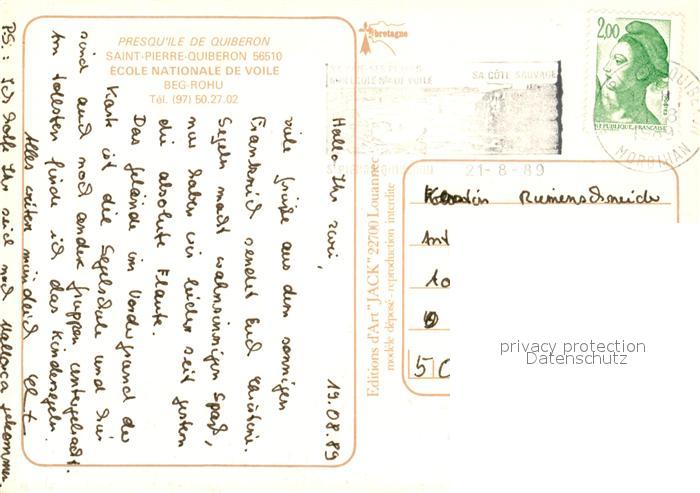 PRESQU'ILE DE QUIBERON
SAINT-PIERRE-QUIBERON 56510
ÉCOLE NATIONALE DE VOILE
BEG-ROHU
Tél. (97) 50.27.02
bretagne
2,00
REPUBLIQUE FRANÇAISE
ECOLE Nle DE VOILE
SA CÔTE SAUVAGE
21-8-89
MORBIHAN
19.08.89
Hallo Ihr zwei,
viele Grüße aus dem sonnigen
Frankreich sendet Euch Christine.
Segeln macht wahnsinnigen Spaß,
nur haben wir leider seit gestern
die absolute Flaute.
Das Gelände im Vordergrund der
Karte ist die Segelschule und hier
sind auch noch andere Gruppen untergebracht.
Am tollsten finde ich das Kindersegeln.
Alles weitere mündlich
PS.: Ich hoffe Ihr seid nach Mallorca gekommen.
Editions d'Art "JACK" 22700 Louannec
modèle déposé - reproduction interdite
Riemenschneider
10
50
privacy protection
Datenschutz